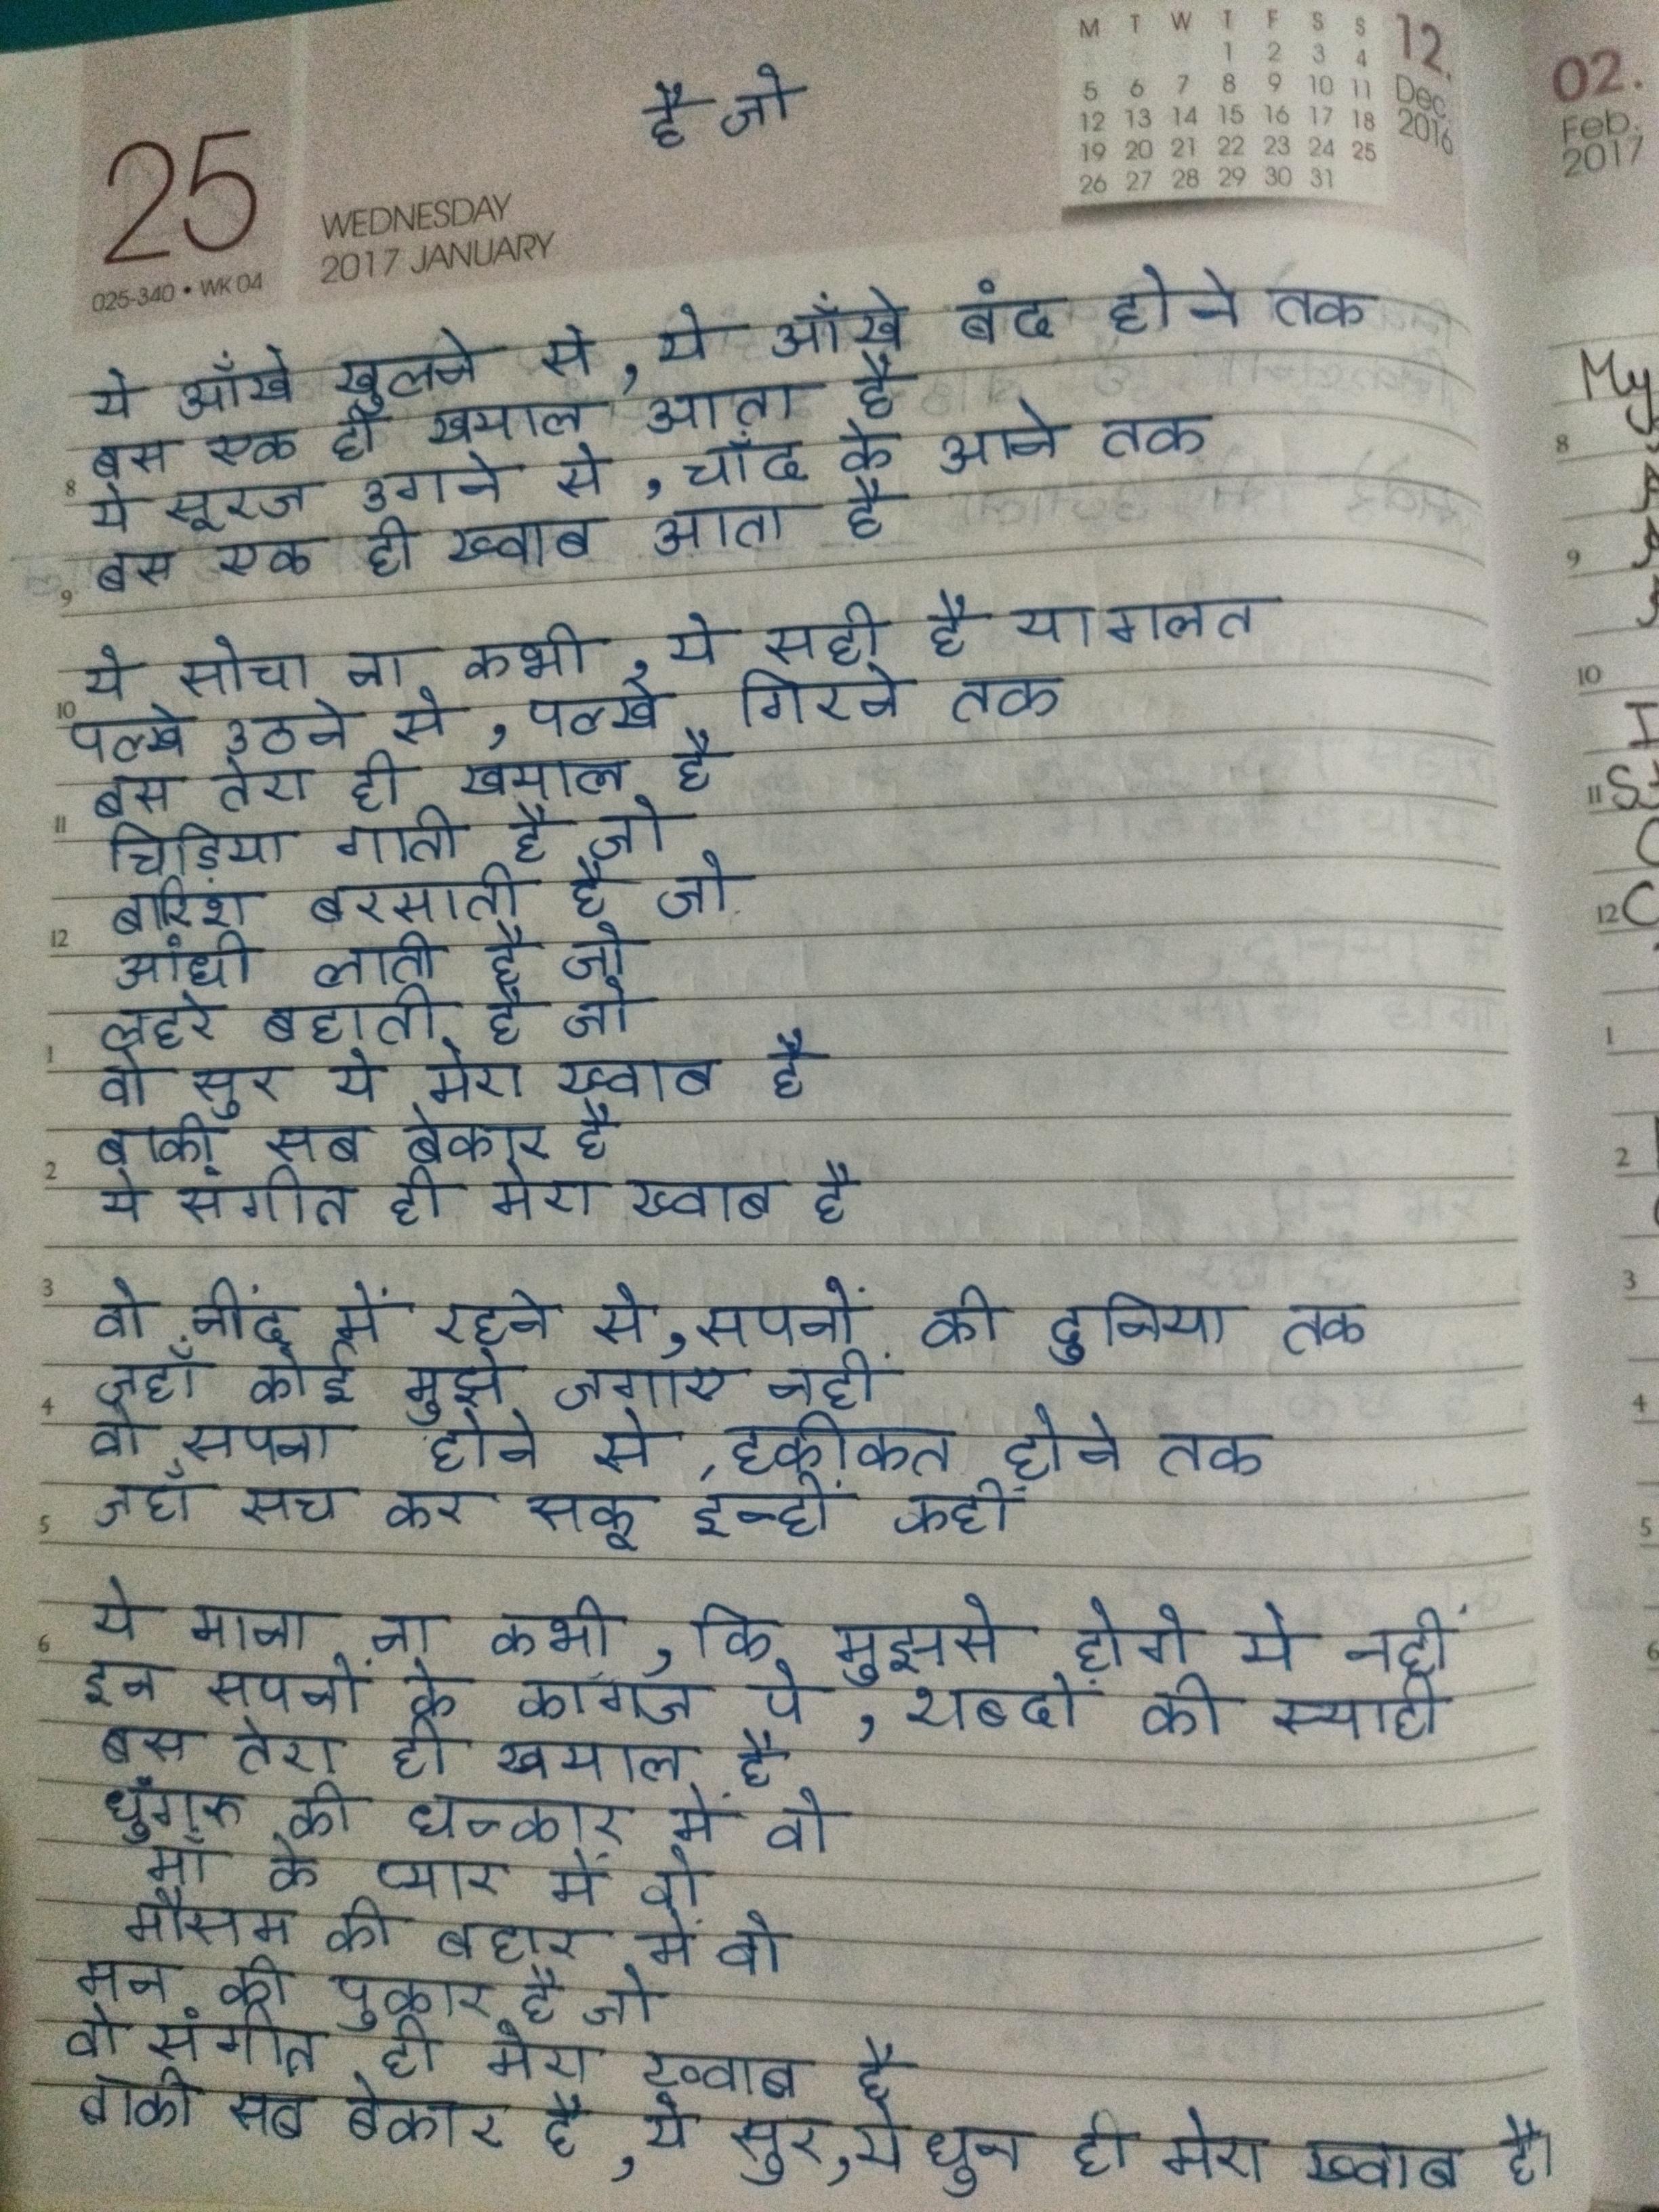 है जो
M T W T F S S
1 2 3 4
5 6 7 8 9 10 11
12 13 14 15 16 17 18
19 20 21 22 23 24 25
26 27 28 29 30 31
12.
Dec.
2016
25
WEDNESDAY
2017 JANUARY
025-340 • WK 04
ये आँखे खुलने से, ये आँखे बंद होने तक
बस एक ही खयाल आता है
8
ये सूरज उगने से, चाँद के आने तक
बस एक ही ख्वाब आता है
9
ये सोचा ना कभी, ये सही है या गलत
10
पल्खे उठने से, पल्खे गिरने तक
बस तेरा ही खयाल है
11
चिड़िया गाती है जो
बारिश बरसाती है जो
12
आंधी लाती है जो
लहरे बहाती है जो
1
वो सुर ये मेरा ख्वाब है
बाकी सब बेकार है
2
ये संगीत ही मेरा ख्वाब है
3
वो नींद में रहने से, सपनों की दुनिया तक
जहाँ कोई मुझे जगाए नहीं
4
वो सपना होने से, हकीकत होने तक
जहाँ सच कर सकू इन्हें कहीं
5
ये माना ना कभी, कि मुझसे होगे ये नहीं
6
इन सपनों के कागज पे, शब्दों की स्याही
बस तेरा ही खयाल है
घुंगरु की धन्कार में वो
माँ के प्यार में वो
मौसम की बहार में वो
मन की पुकार है जो
वो संगीत ही मेरा ख्वाब है
बाकी सब बेकार है, ये सुर, ये धुन ही मेरा ख्वाब है।
02.
Feb.
2017
My
8
9
10
I
11
12
1
2
3
4
5
6